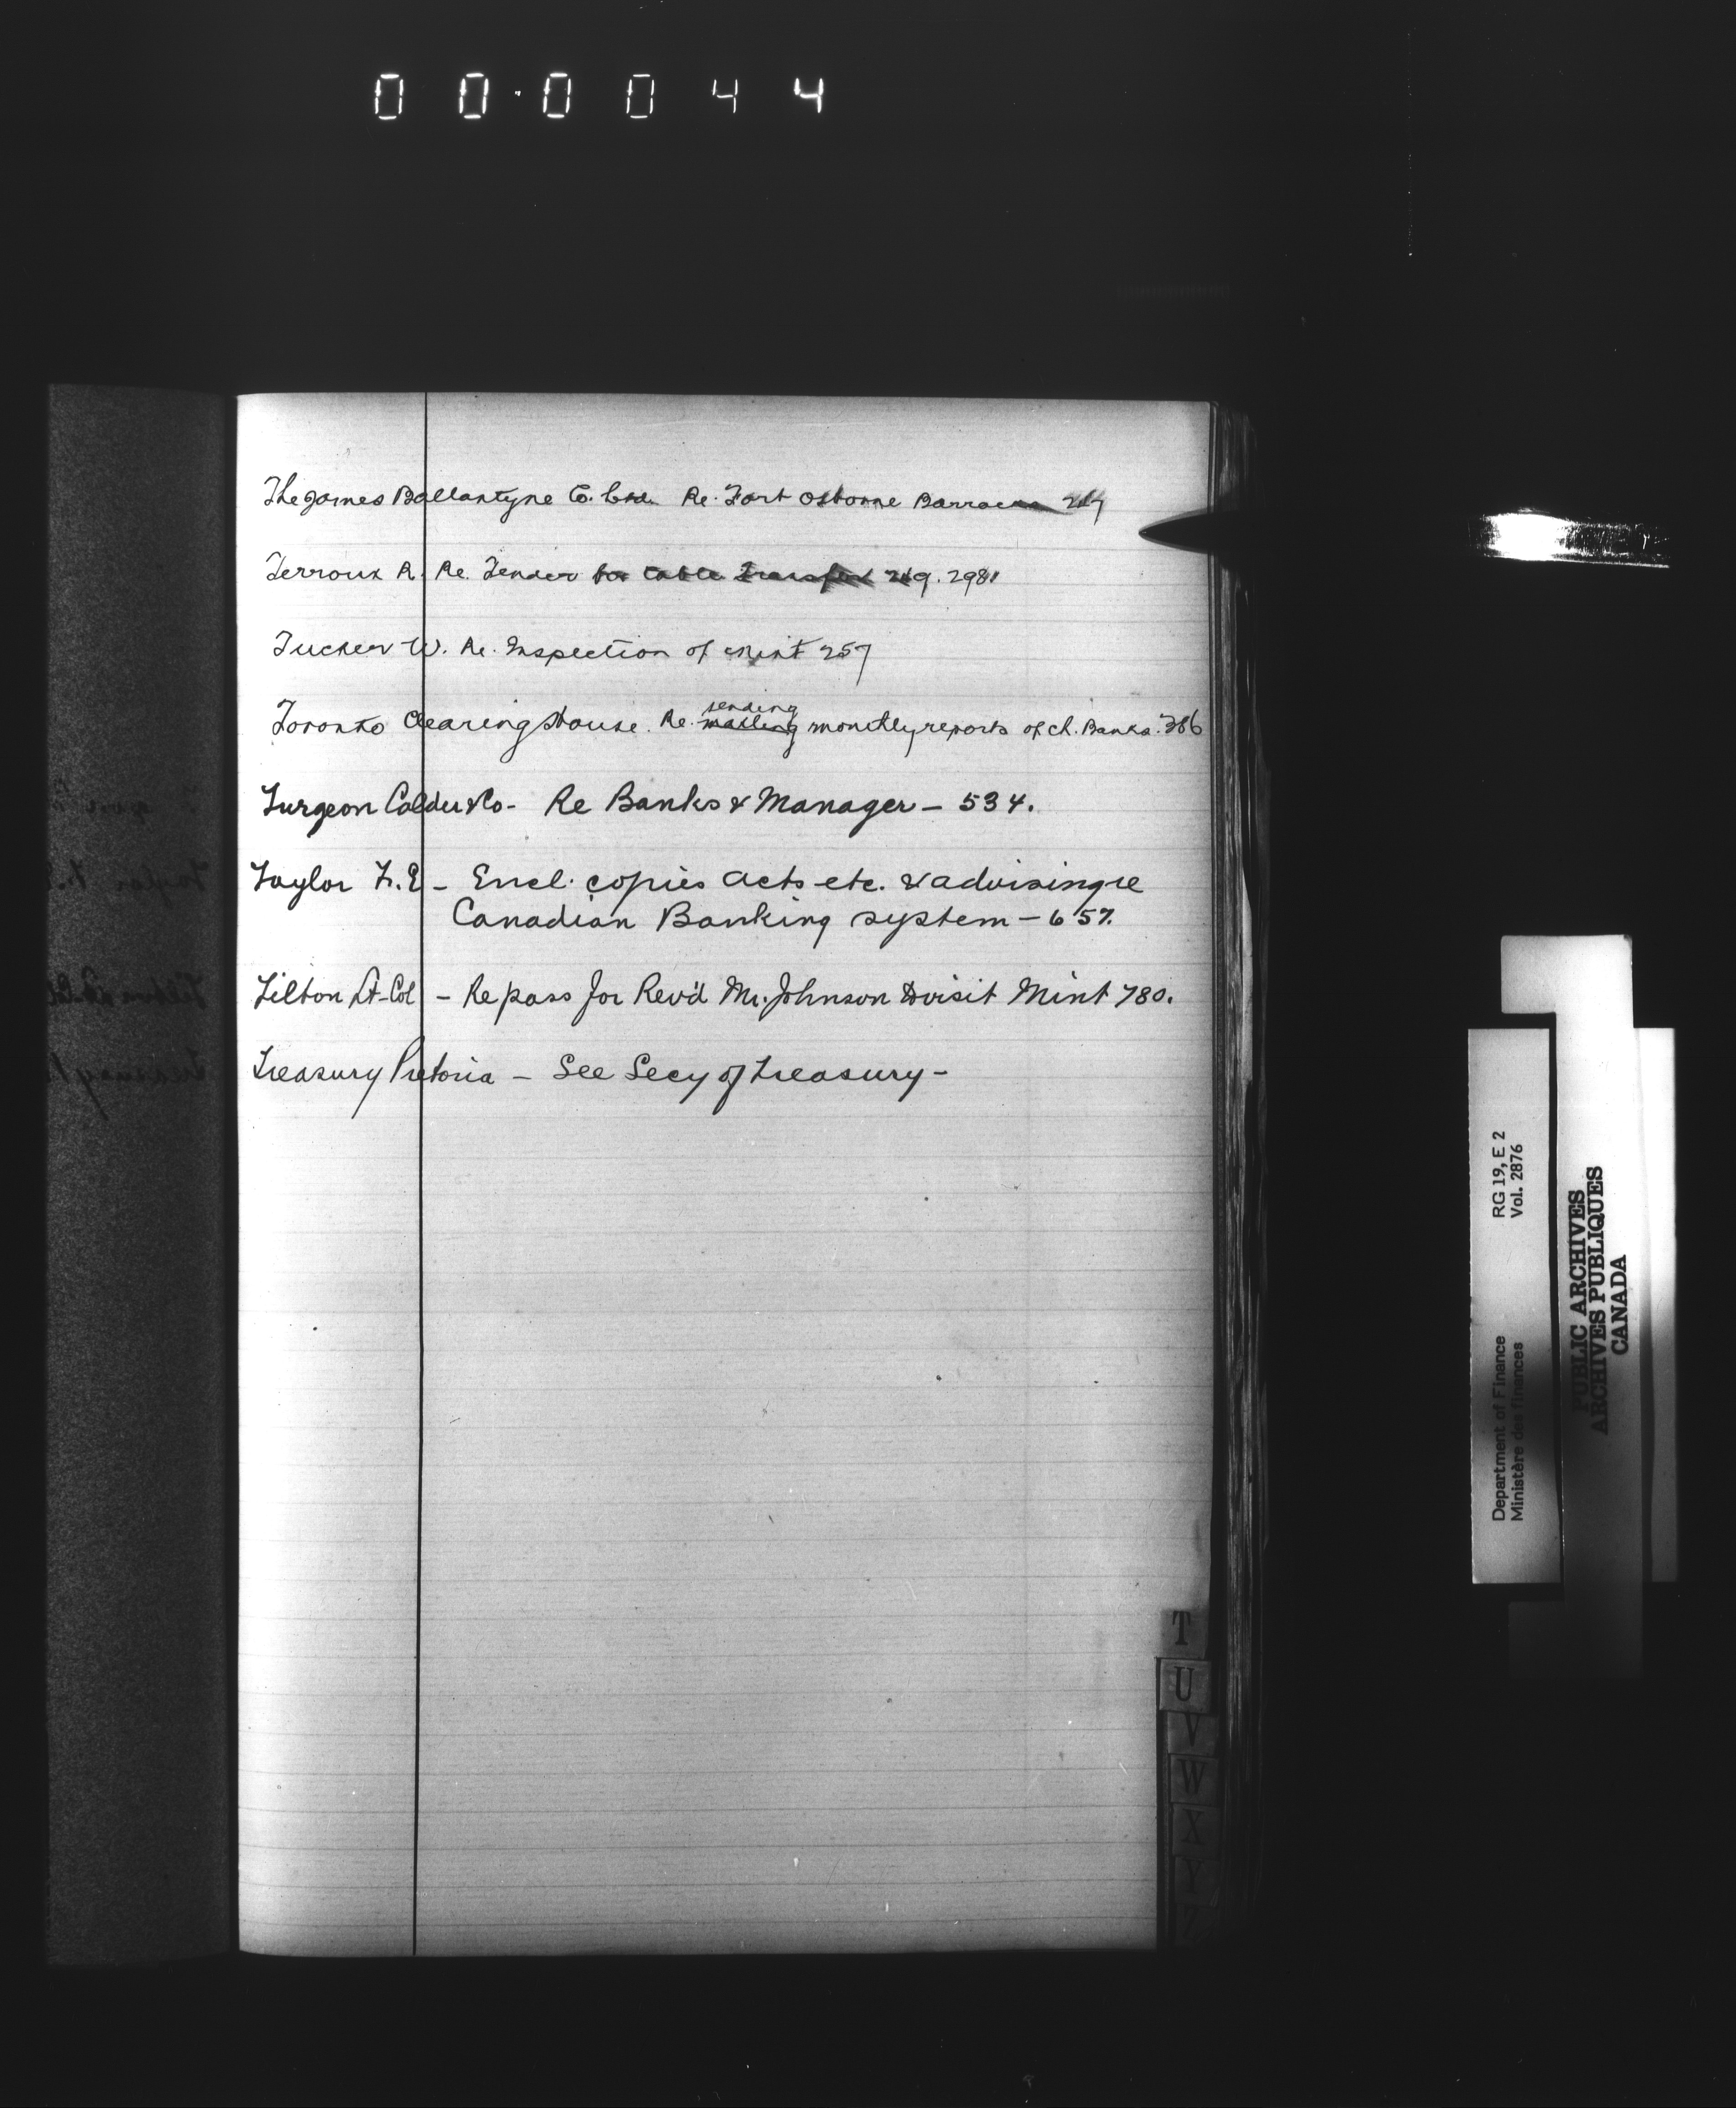 00·0044
The James Ballantyne Co. Ltd. Re. Fort Osborne Barracks
Terroux R. Re. Tender for Cable Transfer 219. 298
Tucker W. Re. Inspection of Mint 257
sending
Toronto Clearing House. Re. mailing monthly reports of ch. Banks. 386
Turgeon Calder & Co - Re Banks & Manager - 534.
Taylor F. E - Encl. copies acts etc. & advising re
Canadian Banking system - 657.
Tilton Lt-Col - Re pass for Rev'd Mr. Johnson to visit Mint 780.
Treasury Pretoria - See Secy of Treasury -
T
U
V
W
X
Y
Z
RG 19, E 2
Vol. 2876
Department of Finance
Ministère des Finances
PUBLIC ARCHIVES
ARCHIVES PUBLIQUES
CANADA